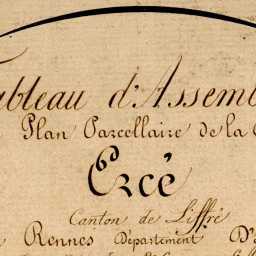 ableau d'Assemb
Plan Parcellaire de la C
Ercé
Canton de Liffré
Rennes Département D'